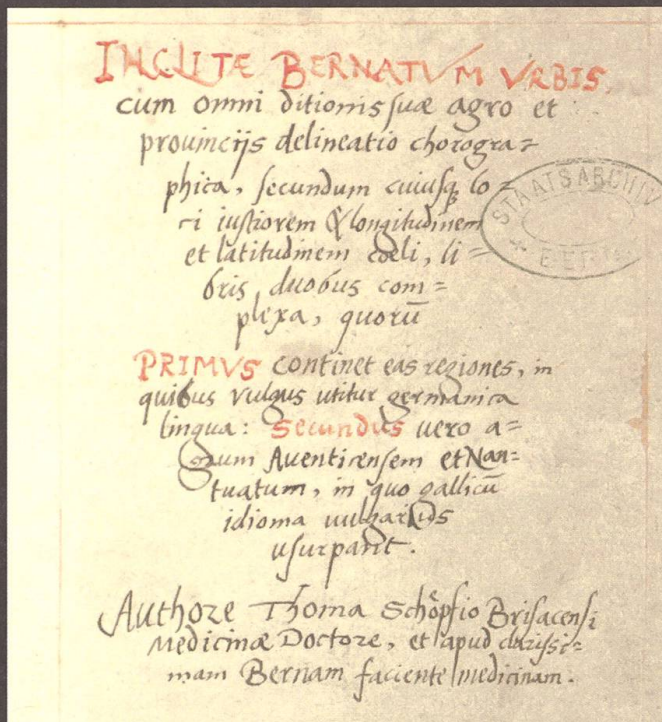 INCLITÆ BERNATVM VRBIS,
cum omni ditionis suæ agro et
prouincijs delineatio chorogra=
phica, secundum cuiusq lo=
ci iustiorem & longitudinem
et latitudinem coeli, li=
bris duobus com=
plexa, quorū
PRIMVS continet eas regiones, in
quibus vulgus utitur germanica
lingua: Secundus vero a=
grum Auenticensem et Nan=
tuatum, in quo gallicū
idioma uulgarius
usurpant.
Authore Thoma Schöpfio Brisacensi
Medicinæ Doctore, et apud clarissi=
mam Bernam faciente medicinam.
STAATSARCHIV